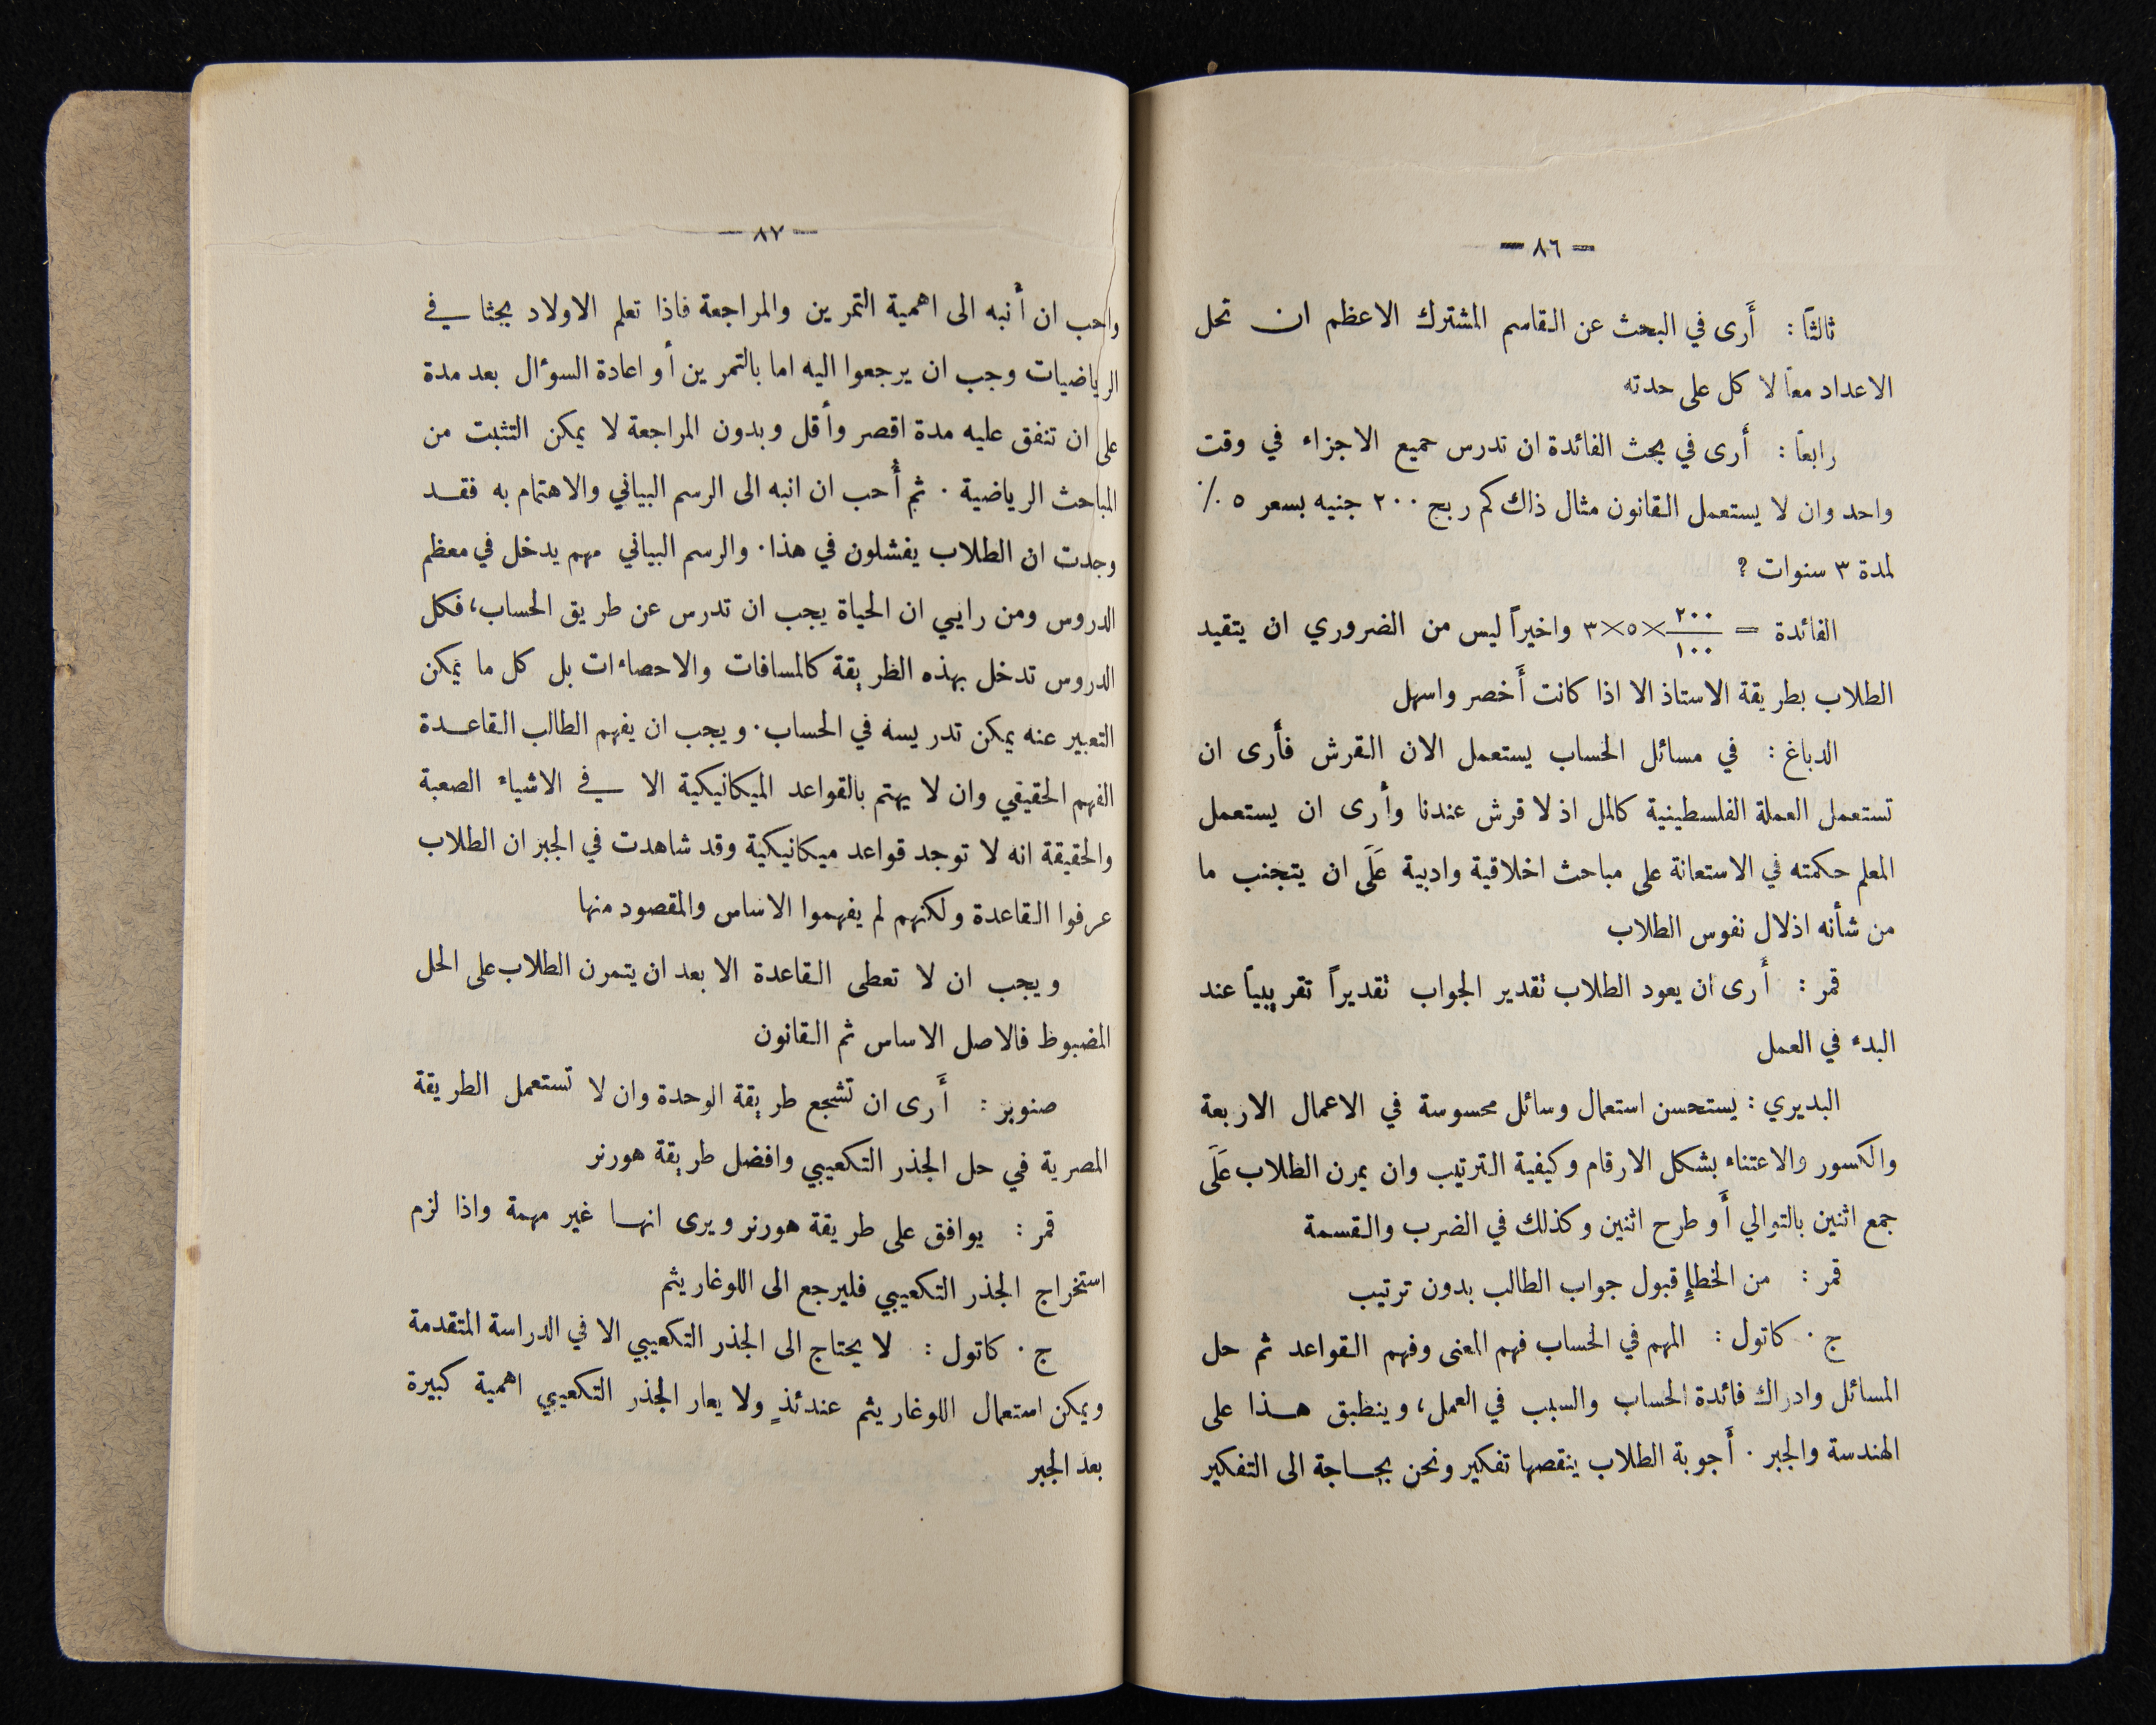 — ٨٦ —
ثالثاً : أَرى في البحث عن القاسم المشترك الاعظم ان تحل
الاعداد معاً لا كل على حدته
رابعاً : أَرى في بحث الفائدة ان تدرس جميع الاجزاء في وقت
واحد وان لا يستعمل القانون مثال ذاك كم ربح ٢٠٠ جنيه بسعر ٥ ٪
لمدة ٣ سنوات ؟
الفائدة = ٢٠٠/١٠٠ ×٥×٣ واخيراً ليس من الضروري ان يتقيد
الطلاب بطريقة الاستاذ الا اذا كانت أَخصر واسهل
الدباغ : في مسائل الحساب يستعمل الان القرش فأَرى ان
تستعمل العملة الفلسطينية كالمل اذ لا قرش عندنا وأَرى ان يستعمل
المعلم حكمته في الاستعانة على مباحث اخلاقية وادبية عَلَى ان يتجنب ما
من شأنه اذلال نفوس الطلاب
قمر : أَرى ان يعود الطلاب تقدير الجواب تقديراً تقريبياً عند
البدء في العمل
البديري : يستحسن استعمال وسائل محسوسة في الاعمال الاربعة
والكسور والاعتناء بشكل الارقام وكيفية الترتيب وان يمرن الطلاب عَلَى
جمع اثنين بالتوالي أَو طرح اثنين وكذلك في الضرب والقسمة
قمر : من الخطإِ قبول جواب الطالب بدون ترتيب
ج . كاتول : المهم في الحساب فهم المعنى وفهم القواعد ثم حل
المسائل وادراك فائدة الحساب والسبب في العمل، وينطبق هـذا على
الهندسة والجبر . أَجوبة الطلاب ينقصها تفكير ونحن بحاجة الى التفكير
— ٨٧ —
واحب ان أنبه الى اهمية التمرين والمراجعة فاذا تعلم الاولاد بحثا في
الرياضيات وجب ان يرجعوا اليه اما بالتمرين أو اعادة السوءال بعد مدة
على ان تنفق عليه مدة اقصر وأقل وبدون المراجعة لا يمكن التثبت من
المباحث الرياضية . ثم أُحب ان انبه الى الرسم البياني والاهتمام به فقـد
وجدت ان الطلاب يفشلون في هذا . والرسم البياني مهم يدخل في معظم
الدروس ومن رايي ان الحياة يجب ان تدرس عن طريق الحساب، فكل
الدروس تدخل بهذه الطريقة كالمسافات والاحصاءات بل كل ما يمكن
التعبير عنه يمكن تدريسه في الحساب . ويجب ان يفهم الطالب القاعـدة
الفهم الحقيقي وان لا يهتم بالقواعد الميكانيكية الا في الاشياء الصعبة
والحقيقة انه لا توجد قواعد ميكانيكية وقد شاهدت في الجبر ان الطلاب
عرفوا القاعدة ولكنهم لم يفهموا الاساس والمقصود منها
ويجب ان لا تعطى القاعدة الا بعد ان يتمرن الطلاب على الحل
المضبوط فالاصل الاساس ثم القانون
صنوبر : أَرى ان تشجع طريقة الوحدة وان لا تستعمل الطريقة
المصرية في حل الجذر التكعيبي وافضل طريقة هورنر
قمر : يوافق على طريقة هورنر ويرى انهـا غير مهمة واذا لزم
استخراج الجذر التكعيبي فليرجع الى اللوغاريثم
ج . كاتول : لا يحتاج الى الجذر التكعيبي الا في الدراسة المتقدمة
ويمكن استعمال اللوغاريثم عندئذٍ ولا يعار الجذر التكعيبي اهمية كبيرة
بعد الجبر